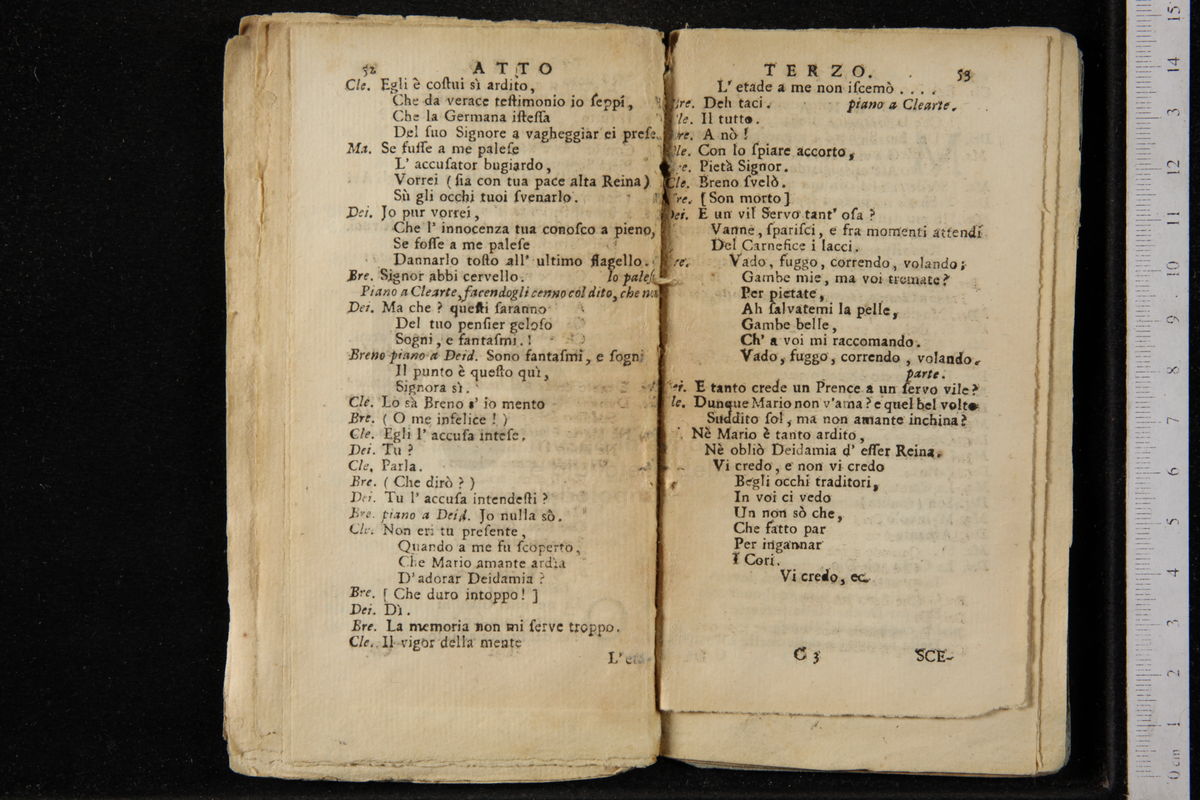 52 ATTO
Cle. Egli è coſtui sì ardito,
Che da verace teſtimonio io ſeppi,
Che la Germana iſteſſa
Del ſuo Signore a vagheggiar ei preſe.
Ma. Se fuſſe a me paleſe
L' accuſator bugiardo,
Vorrei (ſia con tua pace alta Reina)
Sù gli occhi tuoi ſvenarlo.
Dei. Jo pur vorrei,
Che l' innocenza tua conoſco a pieno,
Se foſſe a me paleſe
Dannarlo toſto all' ultimo flagello.
Bre. Signor abbi cervello. lo paleſi
Piano a Clearte, facendogli cenno col dito, che non
Dei. Ma che? queſti ſaranno
Del tuo penſier geloſo
Sogni, e fantaſmi.!
Breno piano a Deid. Sono fantaſmi, e ſogni
Il punto è queſto quì,
Signora sì.
Cle. Lo sà Breno s' io mento
Bre. (O me infelice!)
Cle. Egli l' accuſa inteſe.
Dei. Tu?
Cle. Parla.
Bre. (Che dirò?)
Dei. Tu l' accuſa intendeſti?
Bre. piano a Deid. Jo nulla sò.
Cle. Non eri tu preſente,
Quando a me fu ſcoperto,
Che Mario amante ardìa
D' adorar Deidamia?
Bre. [Che duro intoppo!]
Dei. Dì.
Bre. La memoria non mi ſerve troppo.
Cle. Il vigor della mente
L' eta-
TERZO. 53
L' etade a me non iſcemò ....
Bre. Deh taci. piano a Clearte.
Cle. Il tutto.
Bre. A nò!
Cle. Con lo ſpiare accorto,
Bre. Pietà Signor.
Cle. Breno ſvelò.
Bre. [Son morto]
Dei. E un vil Servo tant' oſa?
Vanne, ſpariſci, e fra momenti attendi
Del Carnefice i lacci.
Bre. Vado, fuggo, correndo, volando;
Gambe mie, ma voi tremate?
Per pietate,
Ah ſalvatemi la pelle,
Gambe belle,
Ch' a voi mi raccomando.
Vado, fuggo, correndo, volando.
parte.
Dei. E tanto crede un Prence a un ſervo vile?
Cle. Dunque Mario non v'ama? e quel bel volto
Suddito ſol, ma non amante inchina?
Nè Mario è tanto ardito,
Nè obliò Deidamia d' eſſer Reina.
Vi credo, e non vi credo
Begli occhi traditori,
In voi ci vedo
Un non sò che,
Che fatto par
Per ingannar
I Cori.
Vi credo, ec.
C 3 SCE-